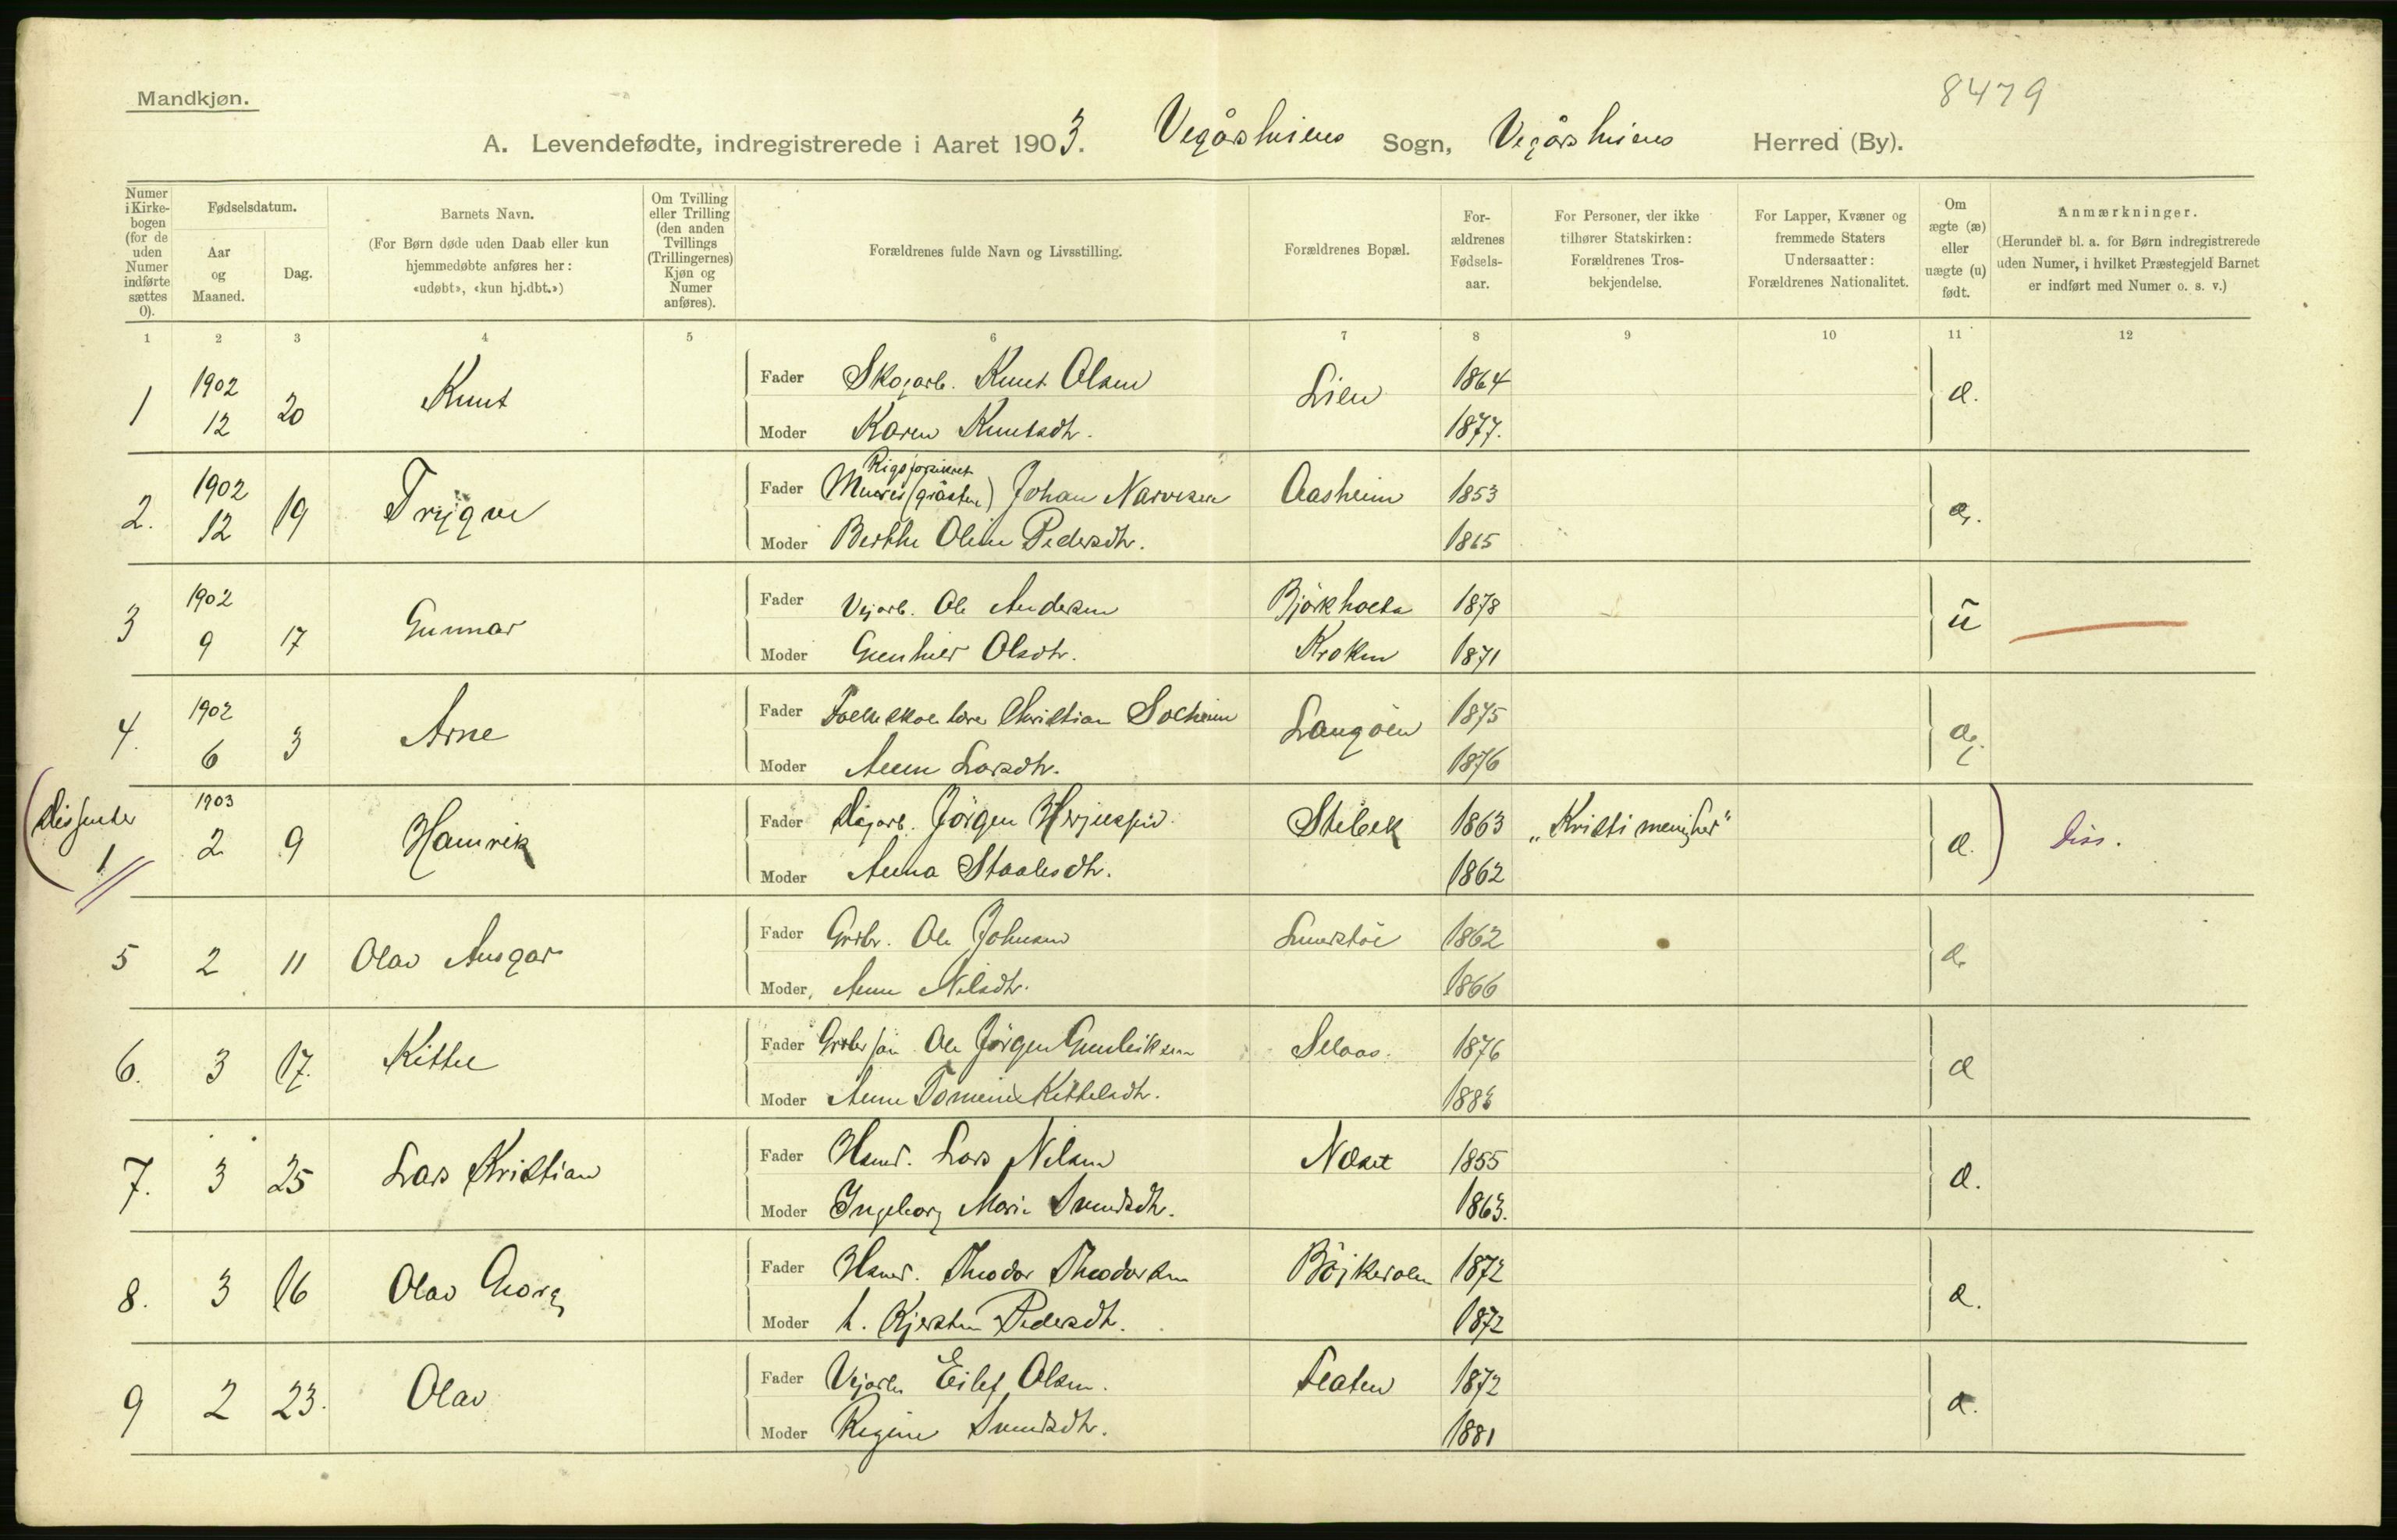 Mandkjøn.
8479
A. Levendefødte, indregistrerede i Aaret 1903. Vegårshiens Sogn, Vegårshiens Herred (By).
Numer i Kirkebogen (for de uden Numer indførte sættes 0).
Fødselsdatum.
Aar og Maaned.
Dag.
Barnets Navn.
(For Børn døde uden Daab eller kun hjemmedøbte anføres her: «udøbt», «kun hj.dbt.»)
Om Tvilling eller Trilling (den anden Tvillings (Trillingernes) Kjøn og Numer anføres).
Forældrenes fulde Navn og Livsstilling.
Forældrenes Bopæl.
Forældrenes Fødselsaar.
For Personer, der ikke tilhører Statskirken: Forældrenes Trosbekjendelse.
For Lapper, Kvæner og fremmede Staters Undersaatter: Forældrenes Nationalitet.
Om ægte (æ) eller uægte (u) født.
Anmærkninger.
(Herunder bl. a. for Børn indregistrerede uden Numer, i hvilket Præstegjeld Barnet er indført med Numer o. s. v.)
1 2 3 4 5 6 7 8 9 10 11 12
1 1902 12 20 Knut Fader Skogarb. Knut Olsen Lien 1864 æ.
Moder Karen Knutsdtr. 1877.
2. 1902 12 19 Trygve Fader Murer (gråsten) Johan Narvesen Aasheim 1853 æ.
Moder Berthe Oline Pedersdtr. 1865
3 1902 9 17 Gunnar Fader Vejarb. Ole Andersen 1878 u
Moder Gunhild Olsdtr. Kroken 1871
4. 1902 6 3 Arne Fader Christian Solheim Langöen 1875 æ.
Moder Anne Larsdtr. 1876
(Dissenter 1 1903 2 9 Hamrik Fader Jörgen Stibek 1863 „Kristi menighed" æ.) Diss.
Moder Anna Staalesdtr. 1862
5 2 11 Olav Ansgar Fader Grbr. Ole Johnsen 1862 æ
Moder Anne Nilsdtr. 1866
6. 3 17. Kittel Fader Ole Jörgen Gunleiksen Selaas. 1876 æ
Moder Anne Kittelsdtr. 1883
7. 3 25 Lars Kristian Fader Husmd. Lars Nilsen Næset 1855 æ.
Moder Ingeborg Marie Svendsdtr. 1863.
8. 3 16 Olav Georg Fader Husmd. Theodor Theodorsen 1872 æ.
Moder h. Kjersten Pedersdtr. 1872
9 2 23. Olav Fader Vejarb. Eilef Olsen. Flaten 1872 æ.
Moder Regine Svendsdtr. 1881